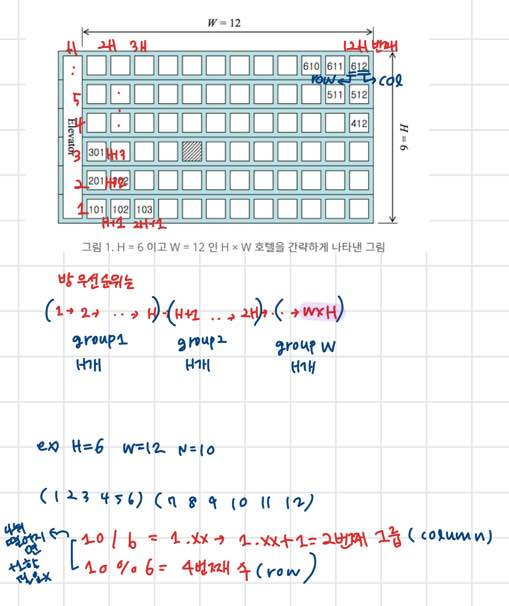 W = 12
H 2H 3H 12H 번째
: 610 611 612
row col
5 : 511 512
4 : 412
Elevator
H = 6
3 301 H+3
2 201 202 H+2
1 101 102 103
H+1 2H+1
그림 1. H = 6 이고 W = 12 인 H × W 호텔을 간략하게 나타낸 그림
방 우선순위는
(1→ 2→ ‥ → H)→(H+1 ‥ → 2H)→‥(‥ → W×H)
group1 group2 group W
H개 H개 H개
ex) H=6 W=12 N=10
(1 2 3 4 5 6) (7 8 9 10 11 12)
나눠떨어지면 +1할 필요X
10 / 6 = 1.xx → 1.xx+1 = 2번째 그룹 (column)
10 % 6 = 4번째 수 (row)